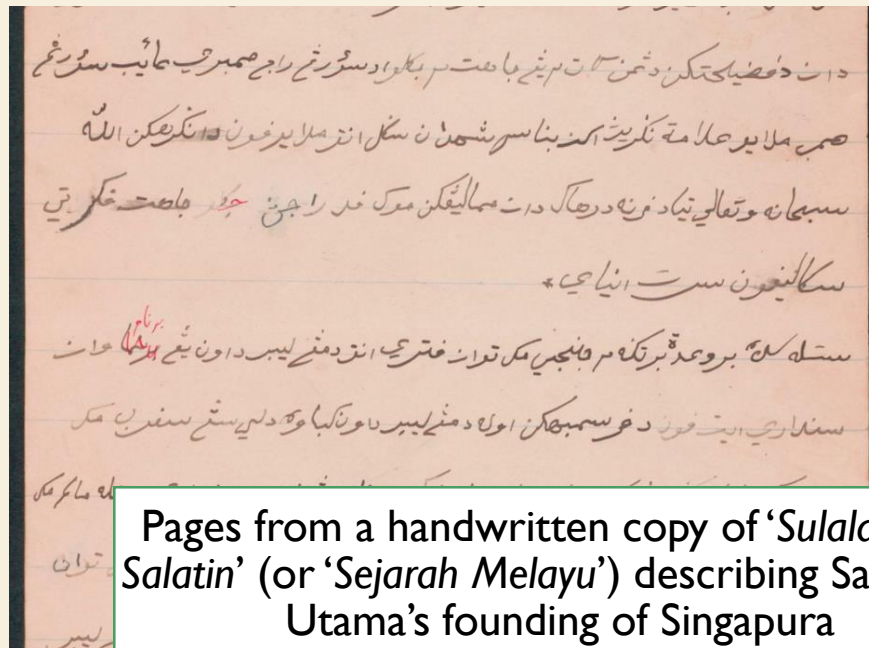 دان دفضيلحتكن دڠن كات٢ يڠ جاهت٢ سئورڠ راج ممبري عائيب سئورڠ
همب ملايو علامة نكريڽ اكن بناس شهدان سكل انق ملايو فون دانكرهكن الله
سبحانه وتعالي تياد فرنه درهاك دان مماليڠكن موك فد راجڽ جكلو جاهت فكرتي
سكاليفون ست انياي
ستله سده بروعدة برتكه٢ جنجي مك توان فتري انق دمڠ ليبر داون يڠ برنام وان
سنداري ايت فون دفرسمبهكن اوله دمڠ ليبر داون كباوه دلي سڠ سفرب مك
توان
ليبر
Pages from a handwritten copy of ‘Sulala
Salatin’ (or ‘Sejarah Melayu’) describing Sa
Utama’s founding of Singapura